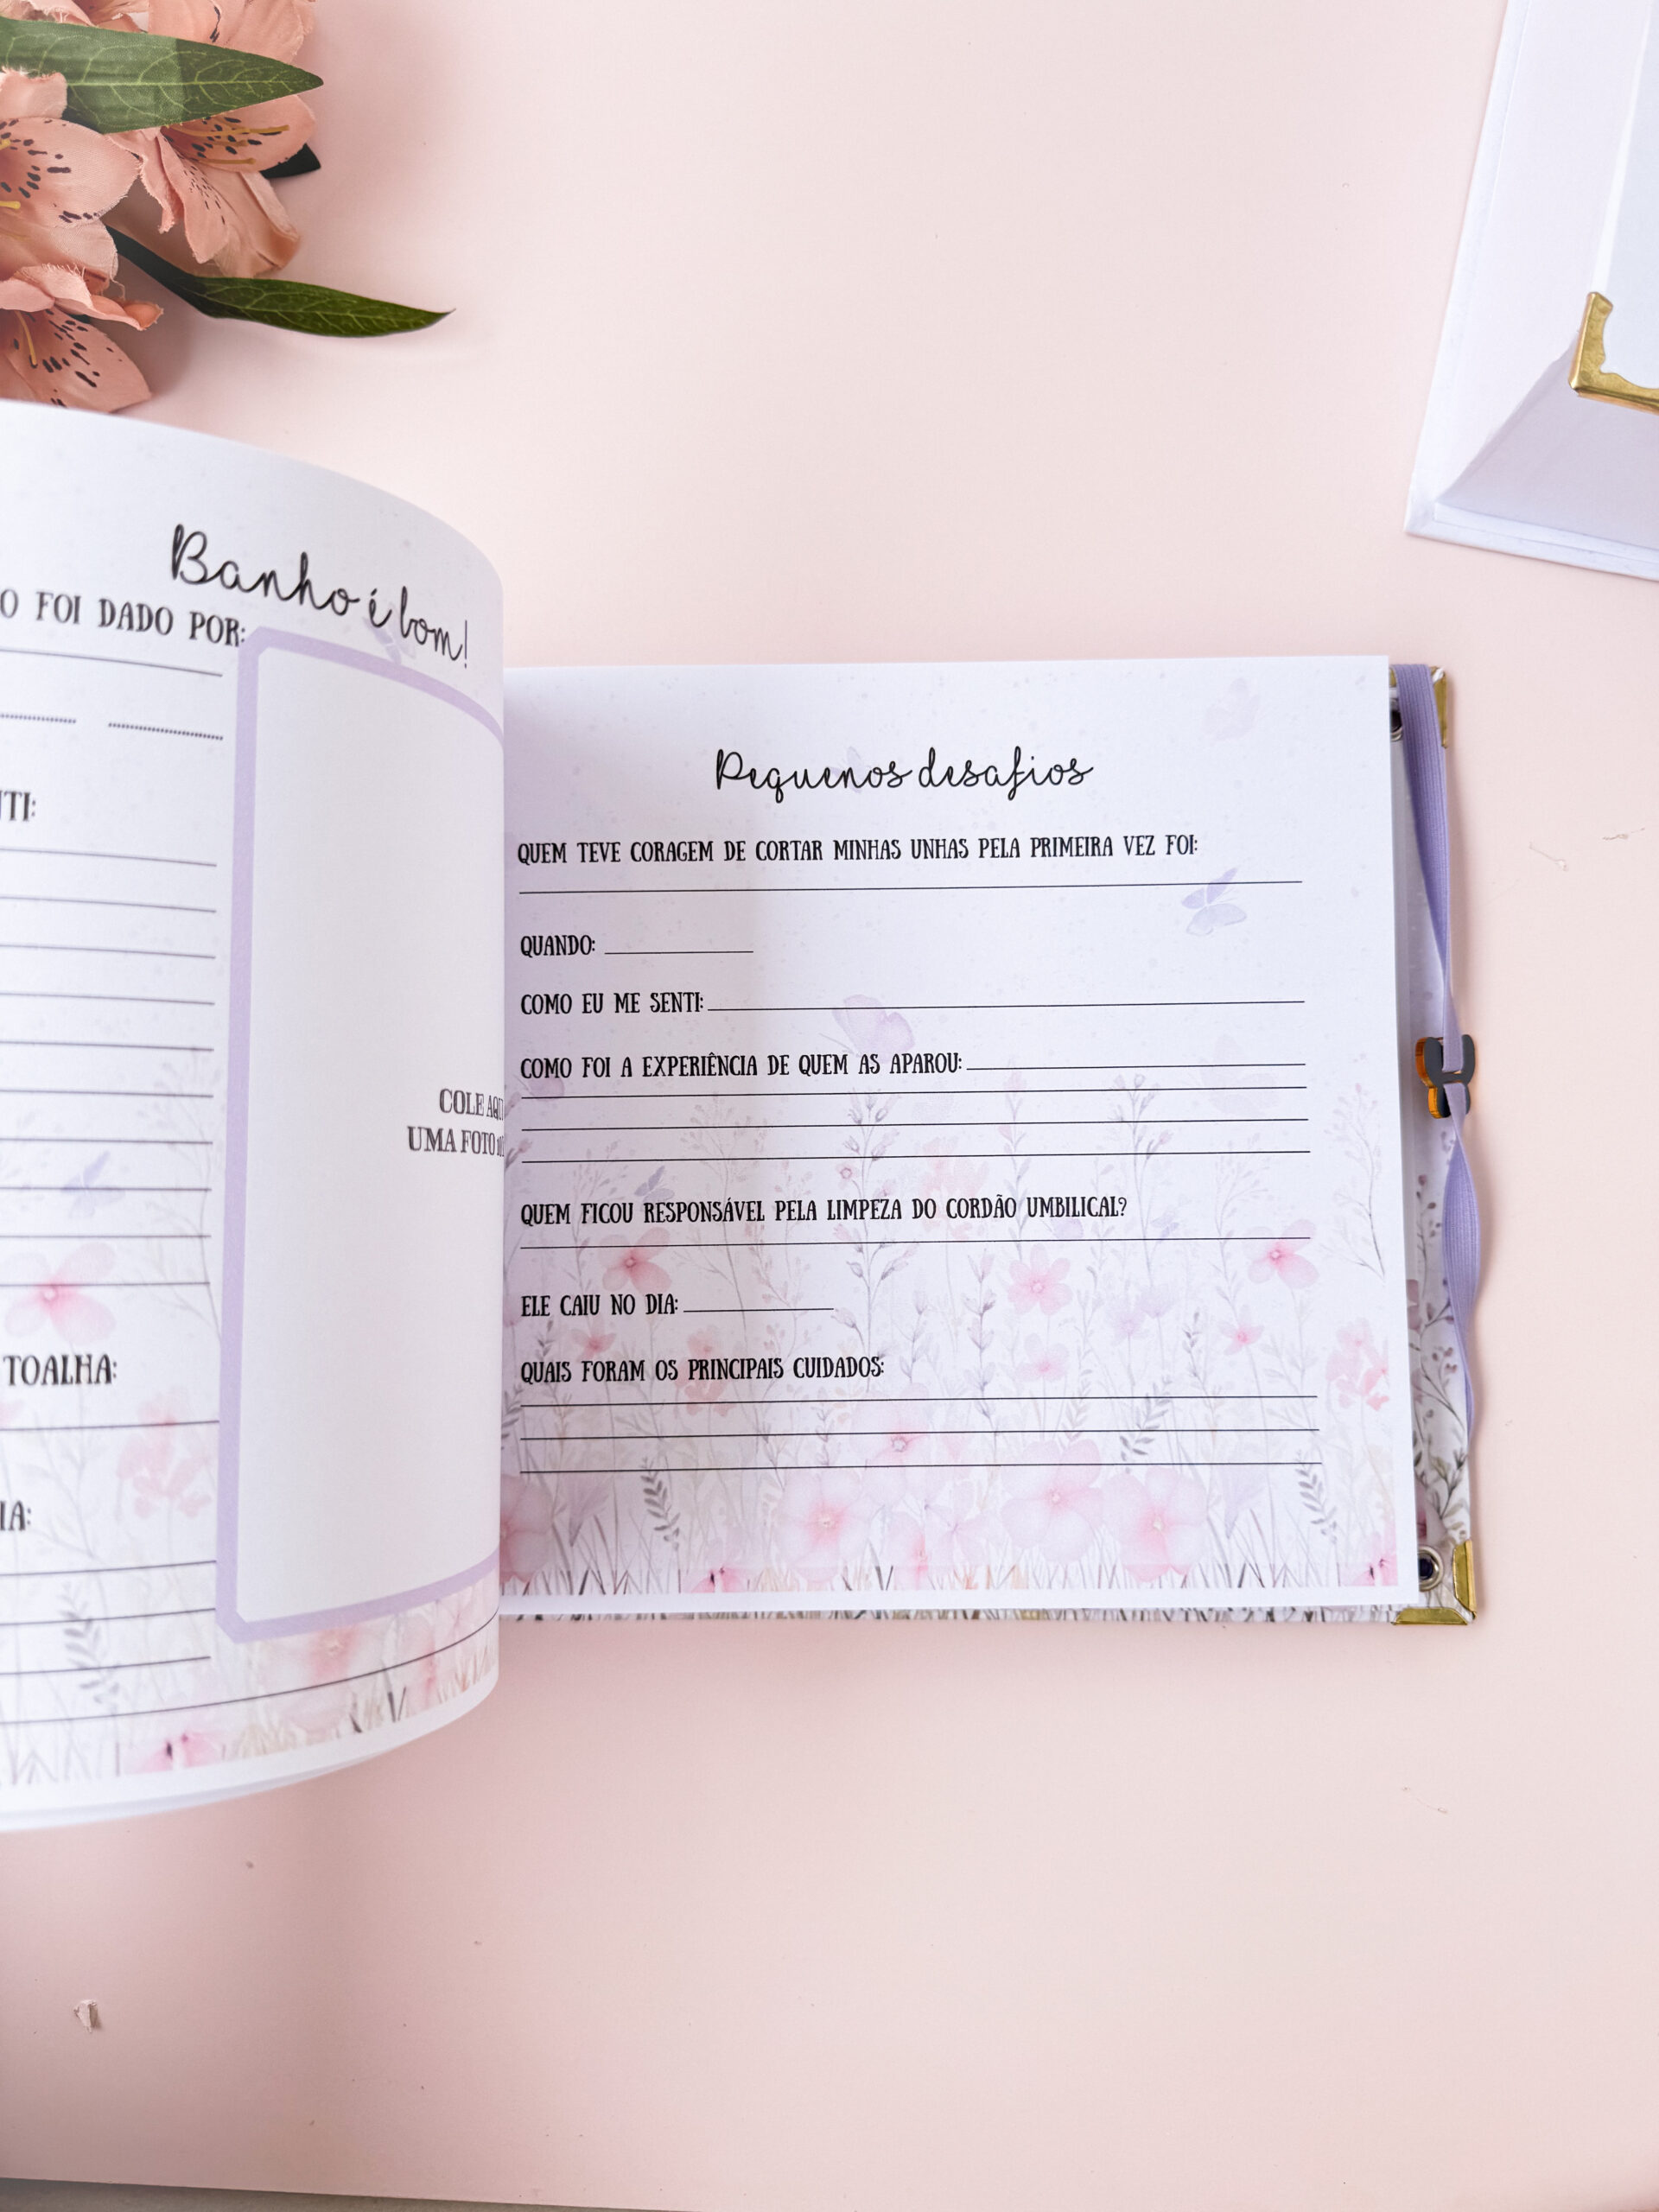 Banho é bom!
O FOI DADO POR:
TI:
COLE AQUI
UMA FOTO
TOALHA:
IA:
Pequenos desafios
QUEM TEVE CORAGEM DE CORTAR MINHAS UNHAS PELA PRIMEIRA VEZ FOI:
QUANDO:
COMO EU ME SENTI:
COMO FOI A EXPERIÊNCIA DE QUEM AS APAROU:
QUEM FICOU RESPONSÁVEL PELA LIMPEZA DO CORDÃO UMBILICAL?
ELE CAIU NO DIA:
QUAIS FORAM OS PRINCIPAIS CUIDADOS: